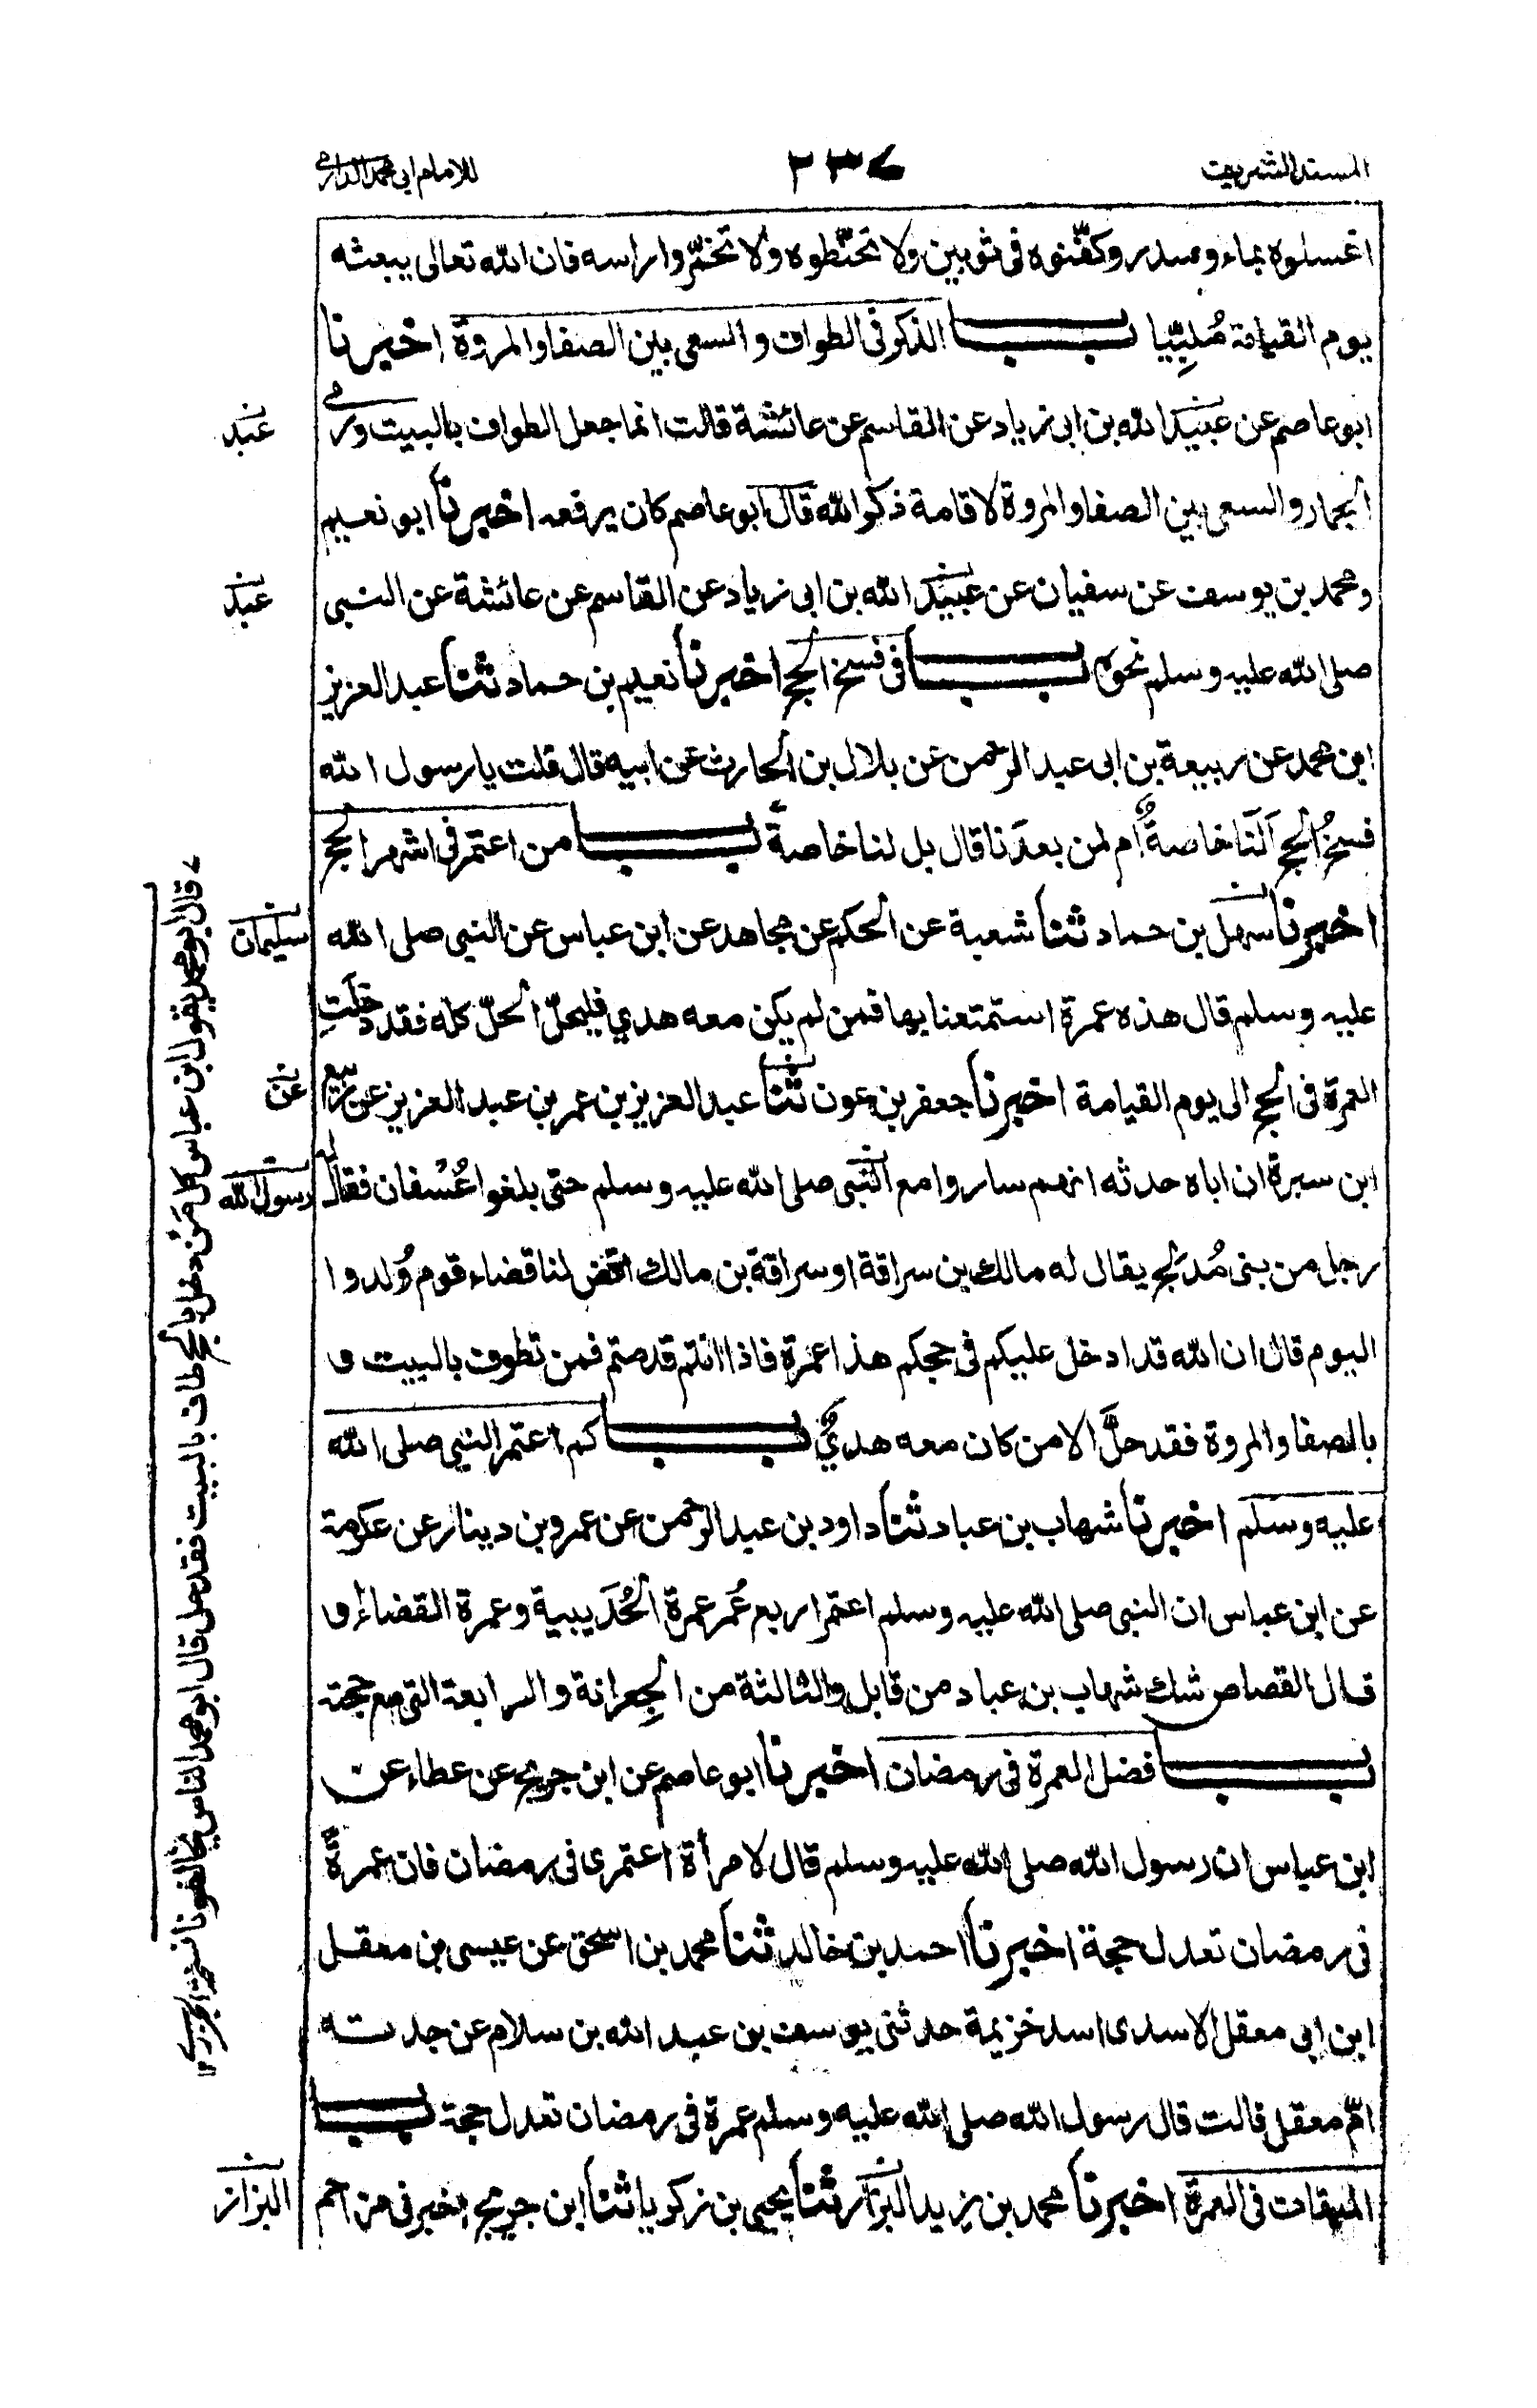 المسند الشريف
٢٣٤
للامام ابى محمد الدارمى
اغسلوه بماء وسدر وكفّنوه فى ثوبين ولا تحنّطوه ولا تخمّروا راسه فان الله تعالى يبعثه
يوم القيامة مُلبِّيا بــــاب الذكر فى الطواف والسعى بين الصفا والمروة اخبرنا
ابو عاصم عن عبيد الله بن ابى زياد عن القاسم عن عائشة قالت انما جعل الطواف بالبيت ورمى
عبد
الجمار والسعى بين الصفا والمروة لاقامة ذكر الله قال ابو عاصم كان يرفعه اخبرنا ابو نعيم
ومحمد بن يوسف عن سفيان عن عبيد الله بن ابى زياد عن القاسم عن عائشة عن النبى
عبد
صلى الله عليه وسلم نحوه بــــاب فى فسخ الحج اخبرنا نعيم بن حماد ثنا عبد العزيز
ابن محمد عن ربيعة بن ابى عبد الرحمن عن بلال بن الحارث عن ابيه قال قلت يا رسول الله
فسخُ الحج اَلَنا خاصةً ام لمن بعدَنا قال بل لنا خاصةً بــــاب من اعتمر فى اشهر الحج
اخبرنا سهل بن حماد ثنا شعبة عن الحكم عن مجاهد عن ابن عباس عن النبى صلى الله
سليمان
عليه وسلم قال هذه عمرة استمتعنا بها فمن لم يكن معه هدي فليحلّ الحلّ كله فقد دخلَتِ
العمرة فى الحج الى يوم القيامة اخبرنا جعفر بن عون ثنا عبد العزيز بن عمر بن عبد العزيز عن ربيع
عن
ابن سبرة ان اباه حدثه انهم ساروا مع النبى صلى الله عليه وسلم حتى بلغوا عُسْفان فقال له
رسول الله
رجل من بنى مُدلج يقال له مالك بن سراقة او سراقة بن مالك اقض لنا قضاء قوم وُلدوا
اليوم قال ان الله قد ادخل عليكم فى حجكم هذا عمرة فاذا انتم قدمتم فمن تطوف بالبيت و
بالصفا والمروة فقد حلَّ الا من كان معه هديٌ بــــاب كم اعتمر النبى صلى الله
عليه وسلم اخبرنا شهاب بن عباد ثنا داود بن عبد الرحمن عن عمرو بن دينار عن عكرمة
عن ابن عباس ان النبى صلى الله عليه وسلم اعتمر اربع عُمَر عمرة الحُدَيبية وعمرة القضاء او
قال القصاص شك شهاب بن عباد من قابل والثالثة من الجِعرانة والرابعة التى مع حجته
بــــاب فضل العمرة فى رمضان اخبرنا ابو عاصم عن ابن جريج عن عطاء عن
ابن عباس ان رسول الله صلى الله عليه وسلم قال لامرأة اعتمرى فى رمضان فان عمرةً
فى رمضان تعدل حجة اخبرنا احمد بن خالد ثنا محمد بن اسحق عن عيسى بن معقل
ابن ابى معقل الاسدى اسد خزيمة حدثنى يوسف بن عبد الله بن سلام عن جدته
امّ معقل قالت قال رسول الله صلى الله عليه وسلم عمرة فى رمضان تعدل حجة بــــاب
الميقات فى العمرة اخبرنا محمد بن يزيد البزار ثنا يحيى بن زكريا ثنا ابن جريج اخبرنى مزاحم
البزاز
قال ابو محمد يقول ابن عباس كل مَنْ دخل بالحج طاف بالبيت فقد حل قال ابو محمد الناس يخالفونا